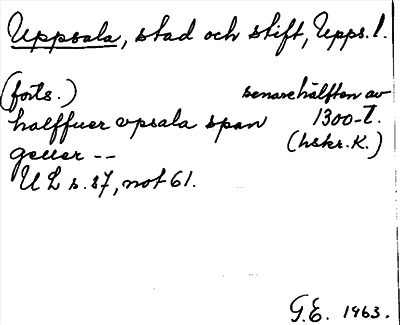 Uppsala, stad och stift, Upps. l.
(forts.) senare hälften av
halffuer vpsala span 1300-t.
geller -- (hskr. K.)
UL s. 37, not 61.
G.E. 1963.